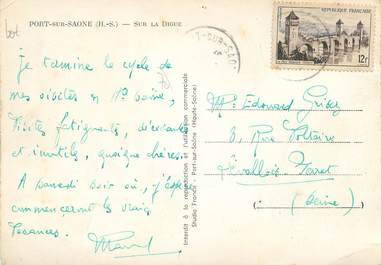 PORT-SUR-SAONE (H.-S.) - SUR LA DIGUE
Je termine le cycle de
mes visites en Hte Saône,
Visites fatigantes,
et inutiles, quoique chères.
A samedi soir où, j'espère
commenceront les vraies
Vacances.
Interdit à la reproduction et à l'édition commerciale
Studio France - Port-sur-Saône (Haute-Saône)
T-SUR-SAO
FRANCE
12F
Mr Edouard
8, Rue Voltaire
Levallois-Perret
(Seine)